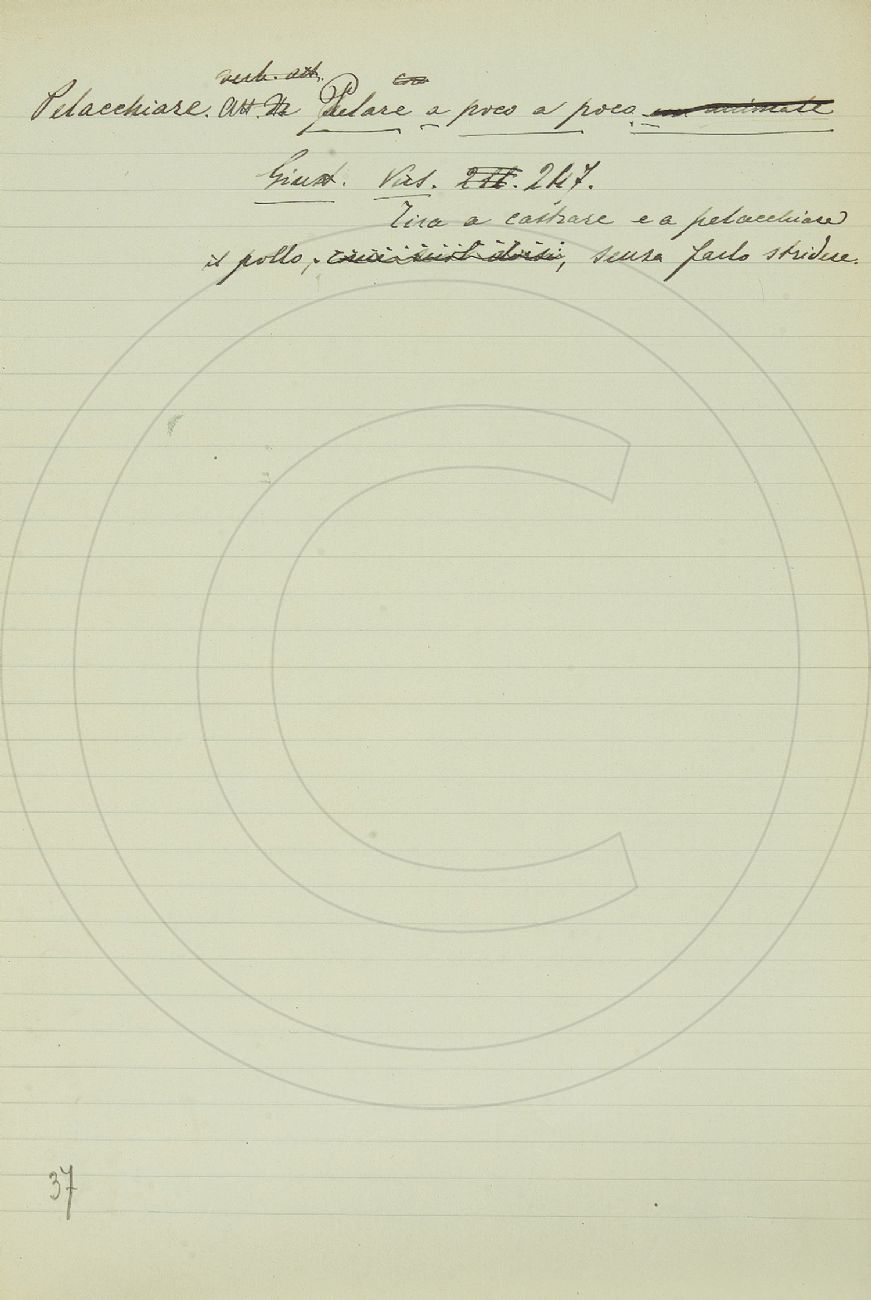 verb. att.
Pelacchiare. Att. Da Pelare a poco a poco un animale
Giust. Vers. 211. 247.
Tira a castrare e a pelacchiare
il pollo, senza farlo stridere.
37